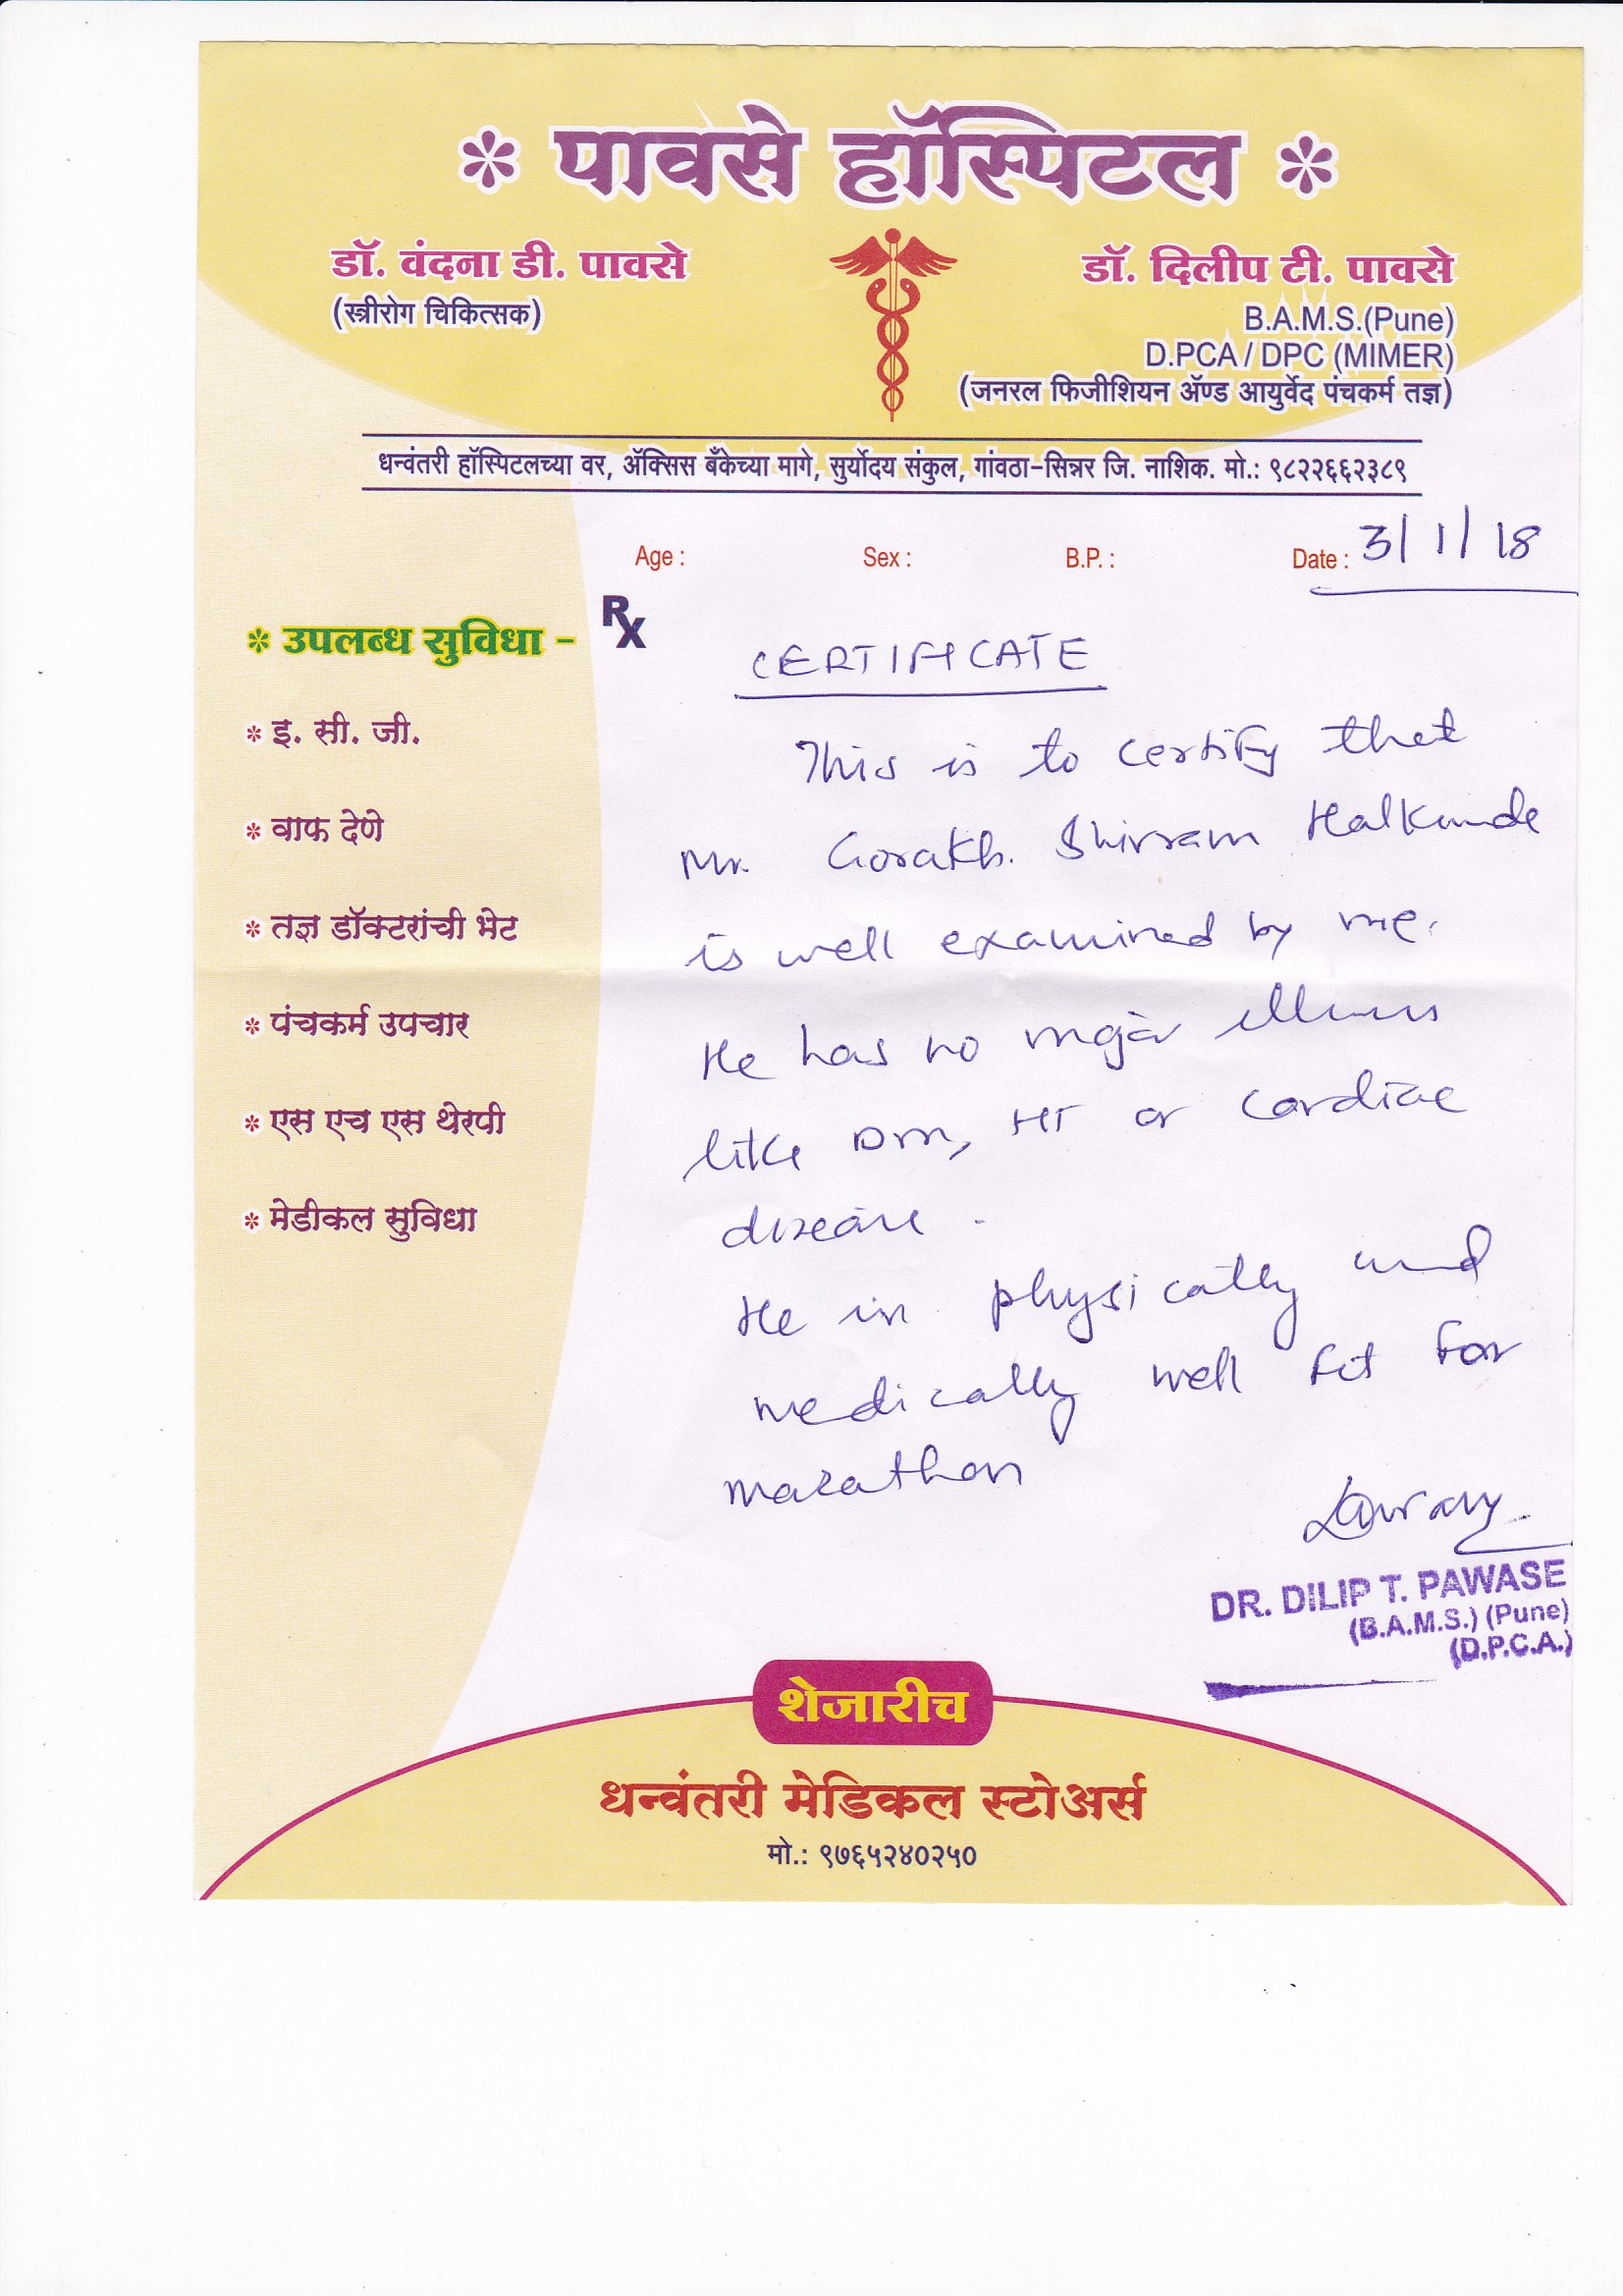 पावसे हॉस्पिटल
डॉ. वंदना डी. पावसे
(स्त्रीरोग चिकित्सक)
डॉ. दिलीप टी. पावसे
B.A.M.S.(Pune)
D.PCA / DPC (MIMER)
(जनरल फिजीशियन ॲण्ड आयुर्वेद पंचकर्म तज्ञ)
धन्वंतरी हॉस्पिटलच्या वर, ॲक्सिस बँकेच्या मागे, सुर्योदय संकुल, गांवठा-सिन्नर जि. नाशिक. मो.: ९८२२६६२३८९
Age : Sex : B.P. : Date : 3/1/18
Rx
* उपलब्ध सुविधा -
* इ. सी. जी.
* वाफ देणे
* तज्ञ डॉक्टरांची भेट
* पंचकर्म उपचार
* एस एच एस थेरपी
* मेडीकल सुविधा
CERTIFICATE
This is to certify that
Mr. Gorakh. Shivram Halkunde
is well examined by me.
He has no major illness
like DM, HT or cardiac
disease.
He is physically and
medically well fit for
marathon
DR. DILIP T. PAWASE
(B.A.M.S.) (Pune)
(D.P.C.A.)
शेजारीच
धन्वंतरी मेडिकल स्टोअर्स
मो.: ९७६५२४०२५०